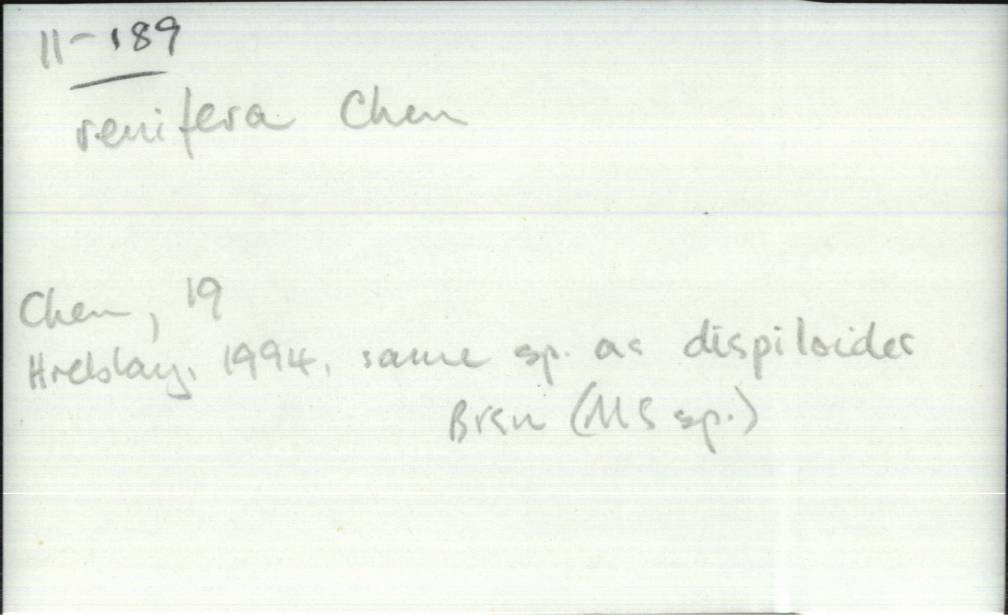 11-189
renifera Chen
Chen, 19
Hreblay, 1994, same sp. as dispiloides
Brsn (MS sp.)